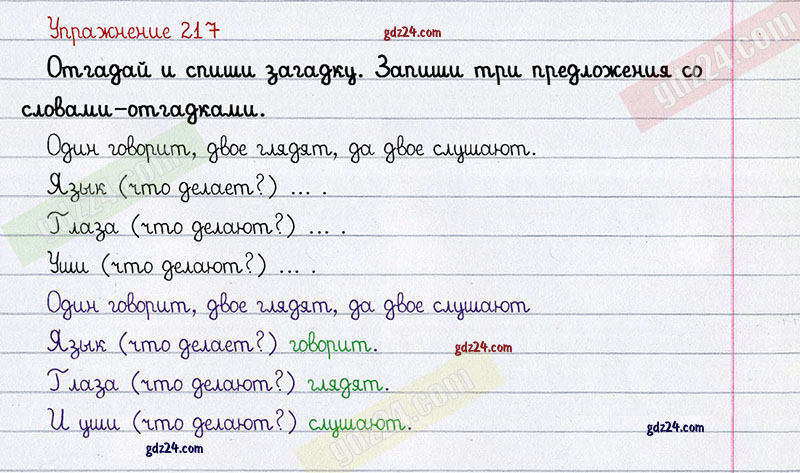 Упражнение 217 gdz24.com
Отгадай и спиши загадку. Запиши три предложения со
словами-отгадками.
Один говорит, двое глядят, да двое слушают.
Язык (что делает?) ... .
Глаза (что делают?) ... .
Уши (что делают?) ... .
Один говорит, двое глядят, да двое слушают
Язык (что делает?) говорит. gdz24.com
Глаза (что делают?) глядят.
И уши (что делают?) слушают. gdz24.com
gdz24.com
gdz24.com
gdz24.com
gdz24.com